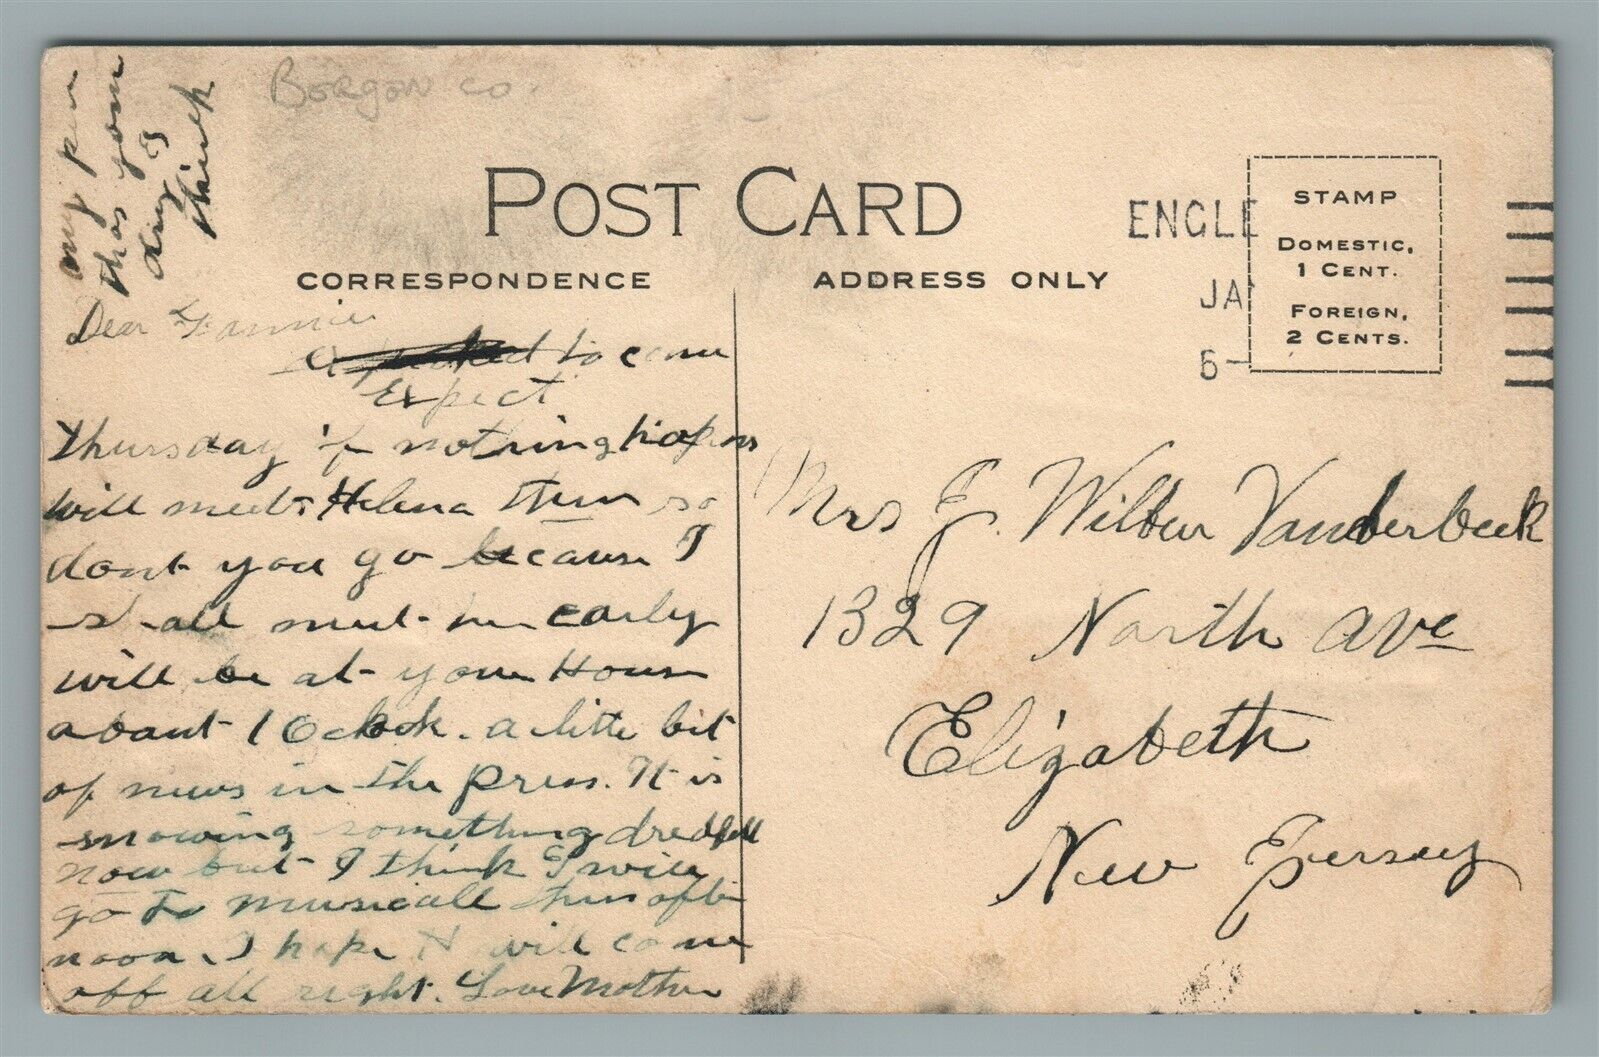 Bergen co.
my pen
has gone
dry I
think
POST CARD
CORRESPONDENCE
ADDRESS ONLY
ENGLE
JA
5-
STAMP
DOMESTIC,
1 CENT.
FOREIGN,
2 CENTS.
Dear Fannie
to come
Expect
thursday if nothing hapens
will meet Helena then so
dont you go because I
shall meet her early
will be at your House
about 1 Oclock. a little bit
of news in the press. It is
snowing something dredfull
now but I think I will
go to musicall this after
noon. I hope it will come
off all right. Love Mother
Mrs J. Wilbur Vanderbeek
1329 North Ave
Elizabeth
New Jersey